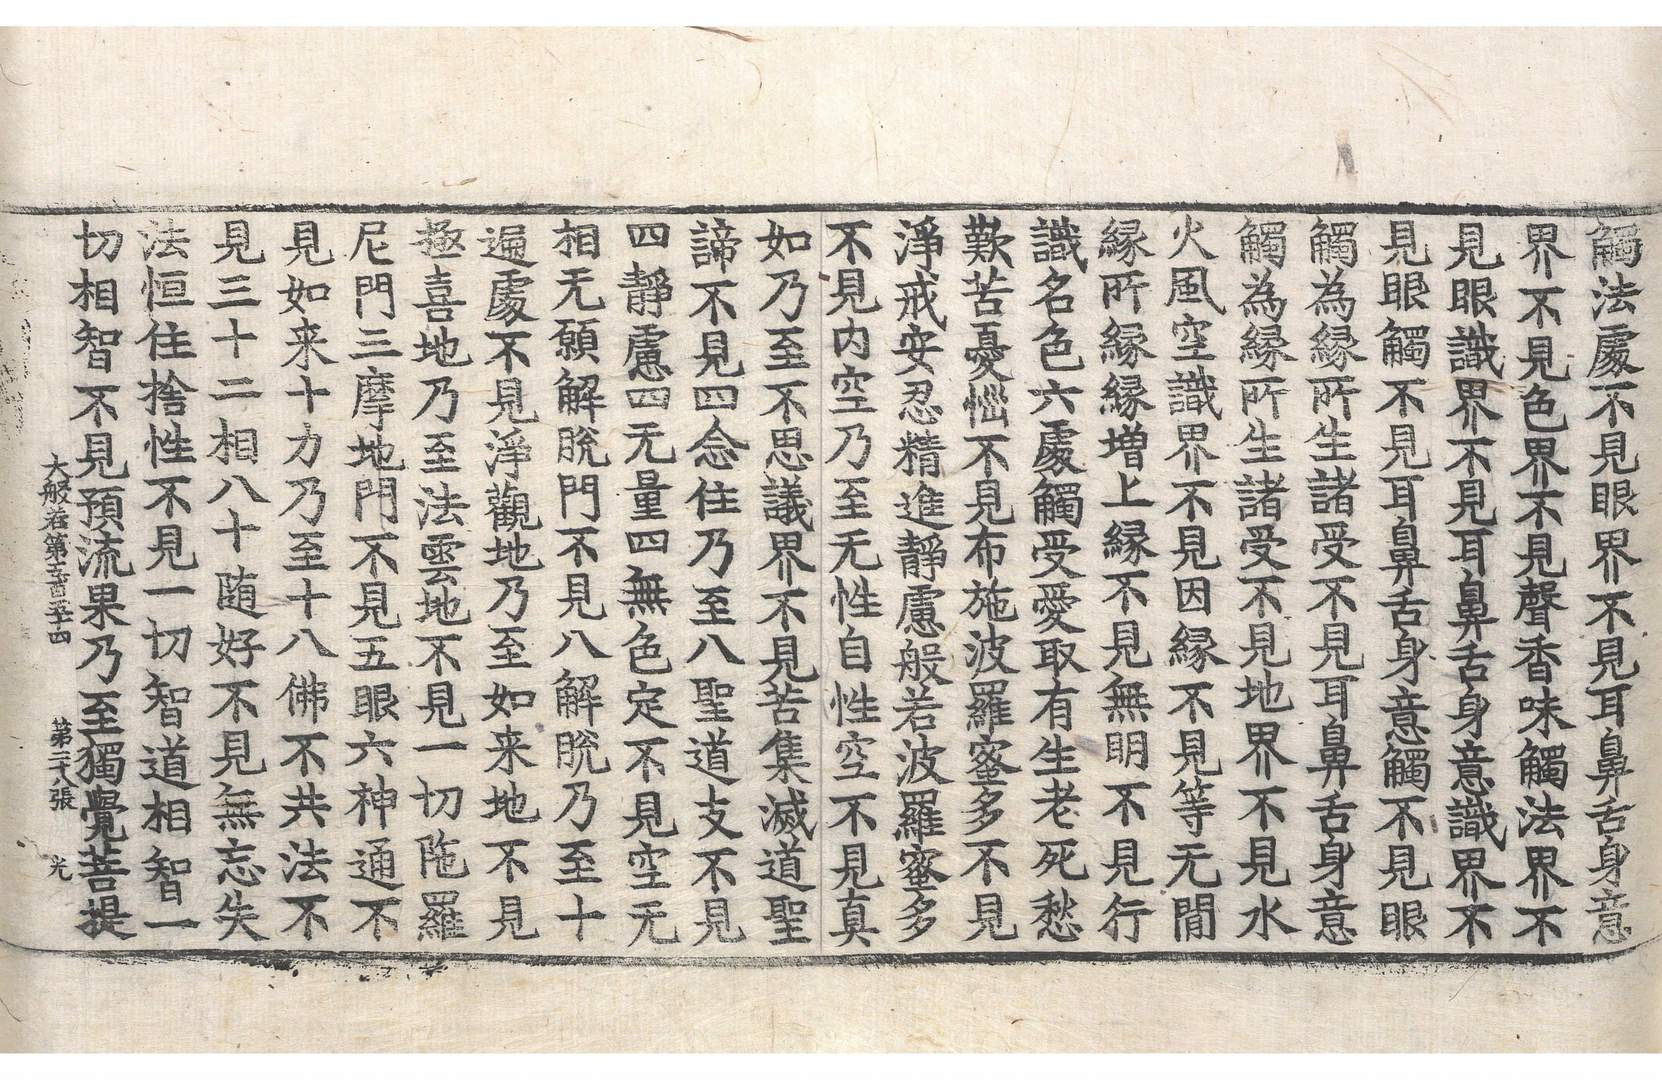 觸法處不見眼界不見耳鼻舌身意
界不見色界不見聲香味觸法界不
見眼識界不見耳鼻舌身意識界不
見眼觸不見耳鼻舌身意觸不見眼
觸為縁所生諸受不見耳鼻舌身意
觸為縁所生諸受不見地界不見水
火風空識界不見因縁不見等无間
縁所縁縁増上縁不見無明不見行
識名色六處觸受愛取有生老死愁
歎苦憂惱不見布施波羅蜜多不見
淨戒安忍精進靜慮般若波羅蜜多
不見内空乃至无性自性空不見真
如乃至不思議界不見苦集滅道聖
諦不見四念住乃至八聖道支不見
四靜慮四无量四無色定不見空无
相无願解脫門不見八解脫乃至十
遍處不見淨觀地乃至如来地不見
極喜地乃至法雲地不見一切陁羅
尼門三摩地門不見五眼六神通不
見如来十力乃至十八佛不共法不
見三十二相八十随好不見無忘失
法恒住捨性不見一切智道相智一
切相智不見預流果乃至獨覺菩提
大般若第五百五十四 第二八張 光